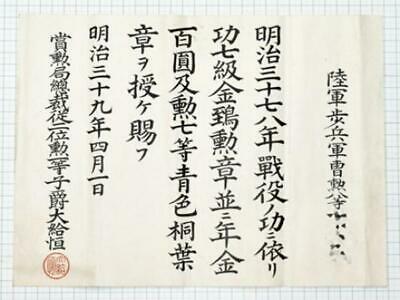 陸軍歩兵軍曹勲八等
明治三十七八年戰役ノ功ニ依リ
功七級金鵄勲章並ニ年金
百圓及勲七等青色桐葉
章ヲ授ケ賜フ
明治三十九年四月一日
賞勲局總裁従二位勲一等子爵大給恒